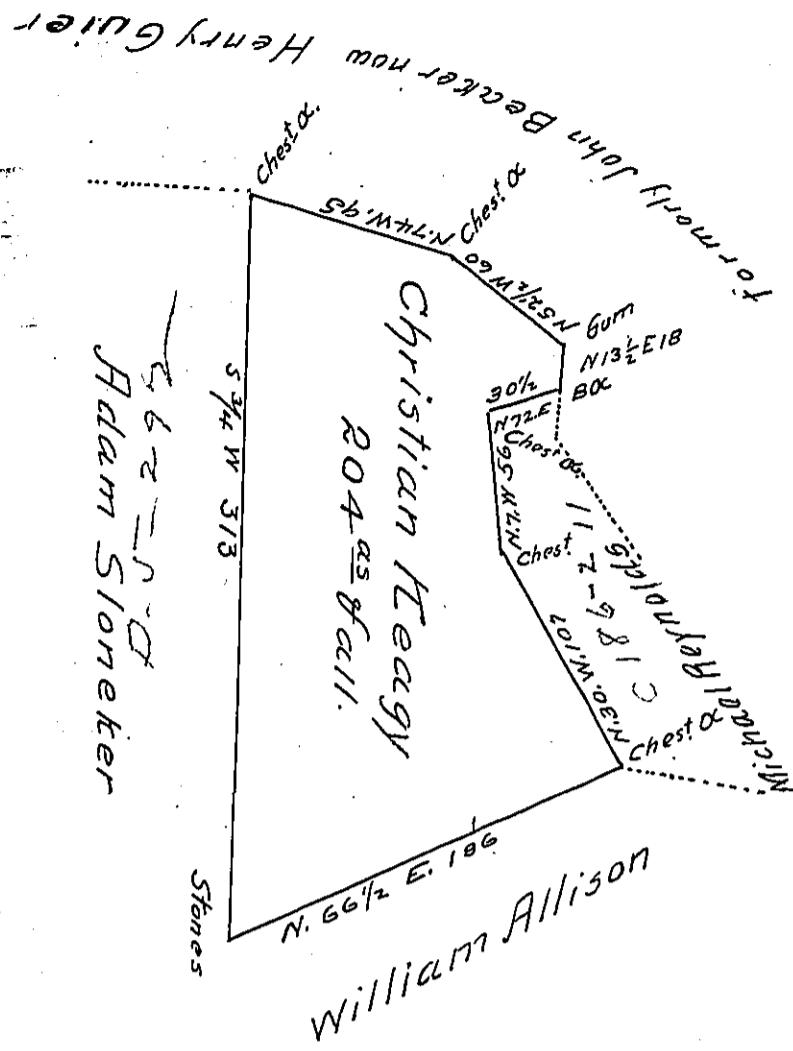 formerly John Beaker now Henry Guier
Chest. α.
N.74W.95
Chest. α
N52½W60
Gum
N13½E18
BOX
30½
N72.E
Chest α.
N.7.W 56
Chest.
N.30.W.107
Chest α
Michael Reynolds
C189-211
Christian Keagy
204 as & all.
S ¾ W 313
Adam Sloneker
Stones
N. 66½ E. 186
William Allison